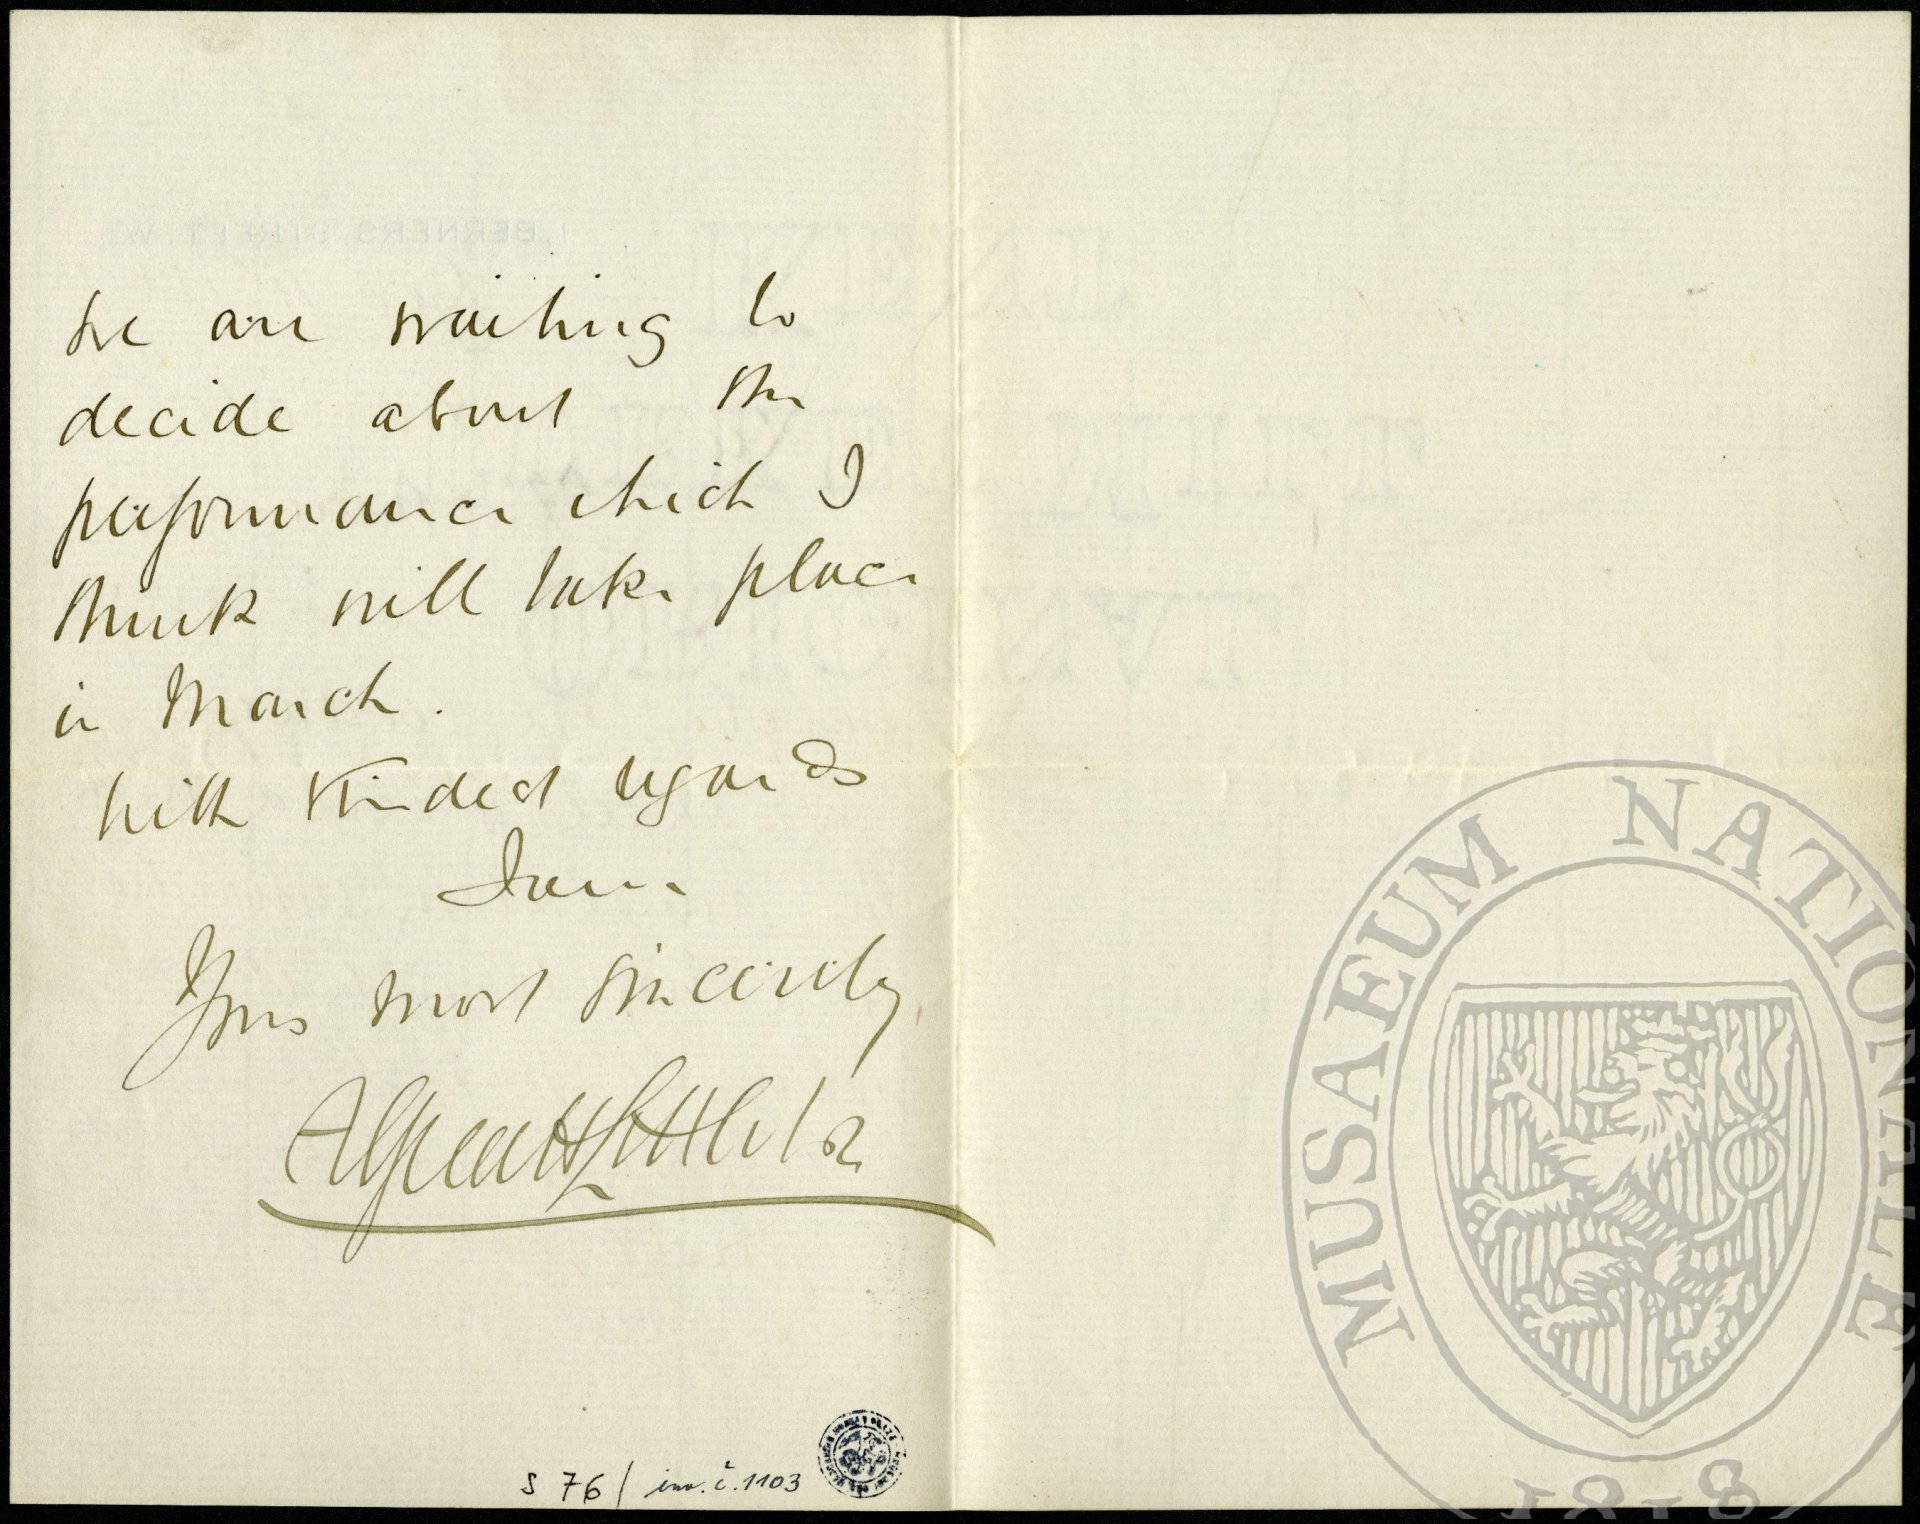 we are waiting to
decide about the
performance which I
think will take place
in March.
With kindest regards
I am
Yours most sincerely
Alfred H Littleton
S 76 / inv. č. 1103
MUSAEUM NATIONALE
1818